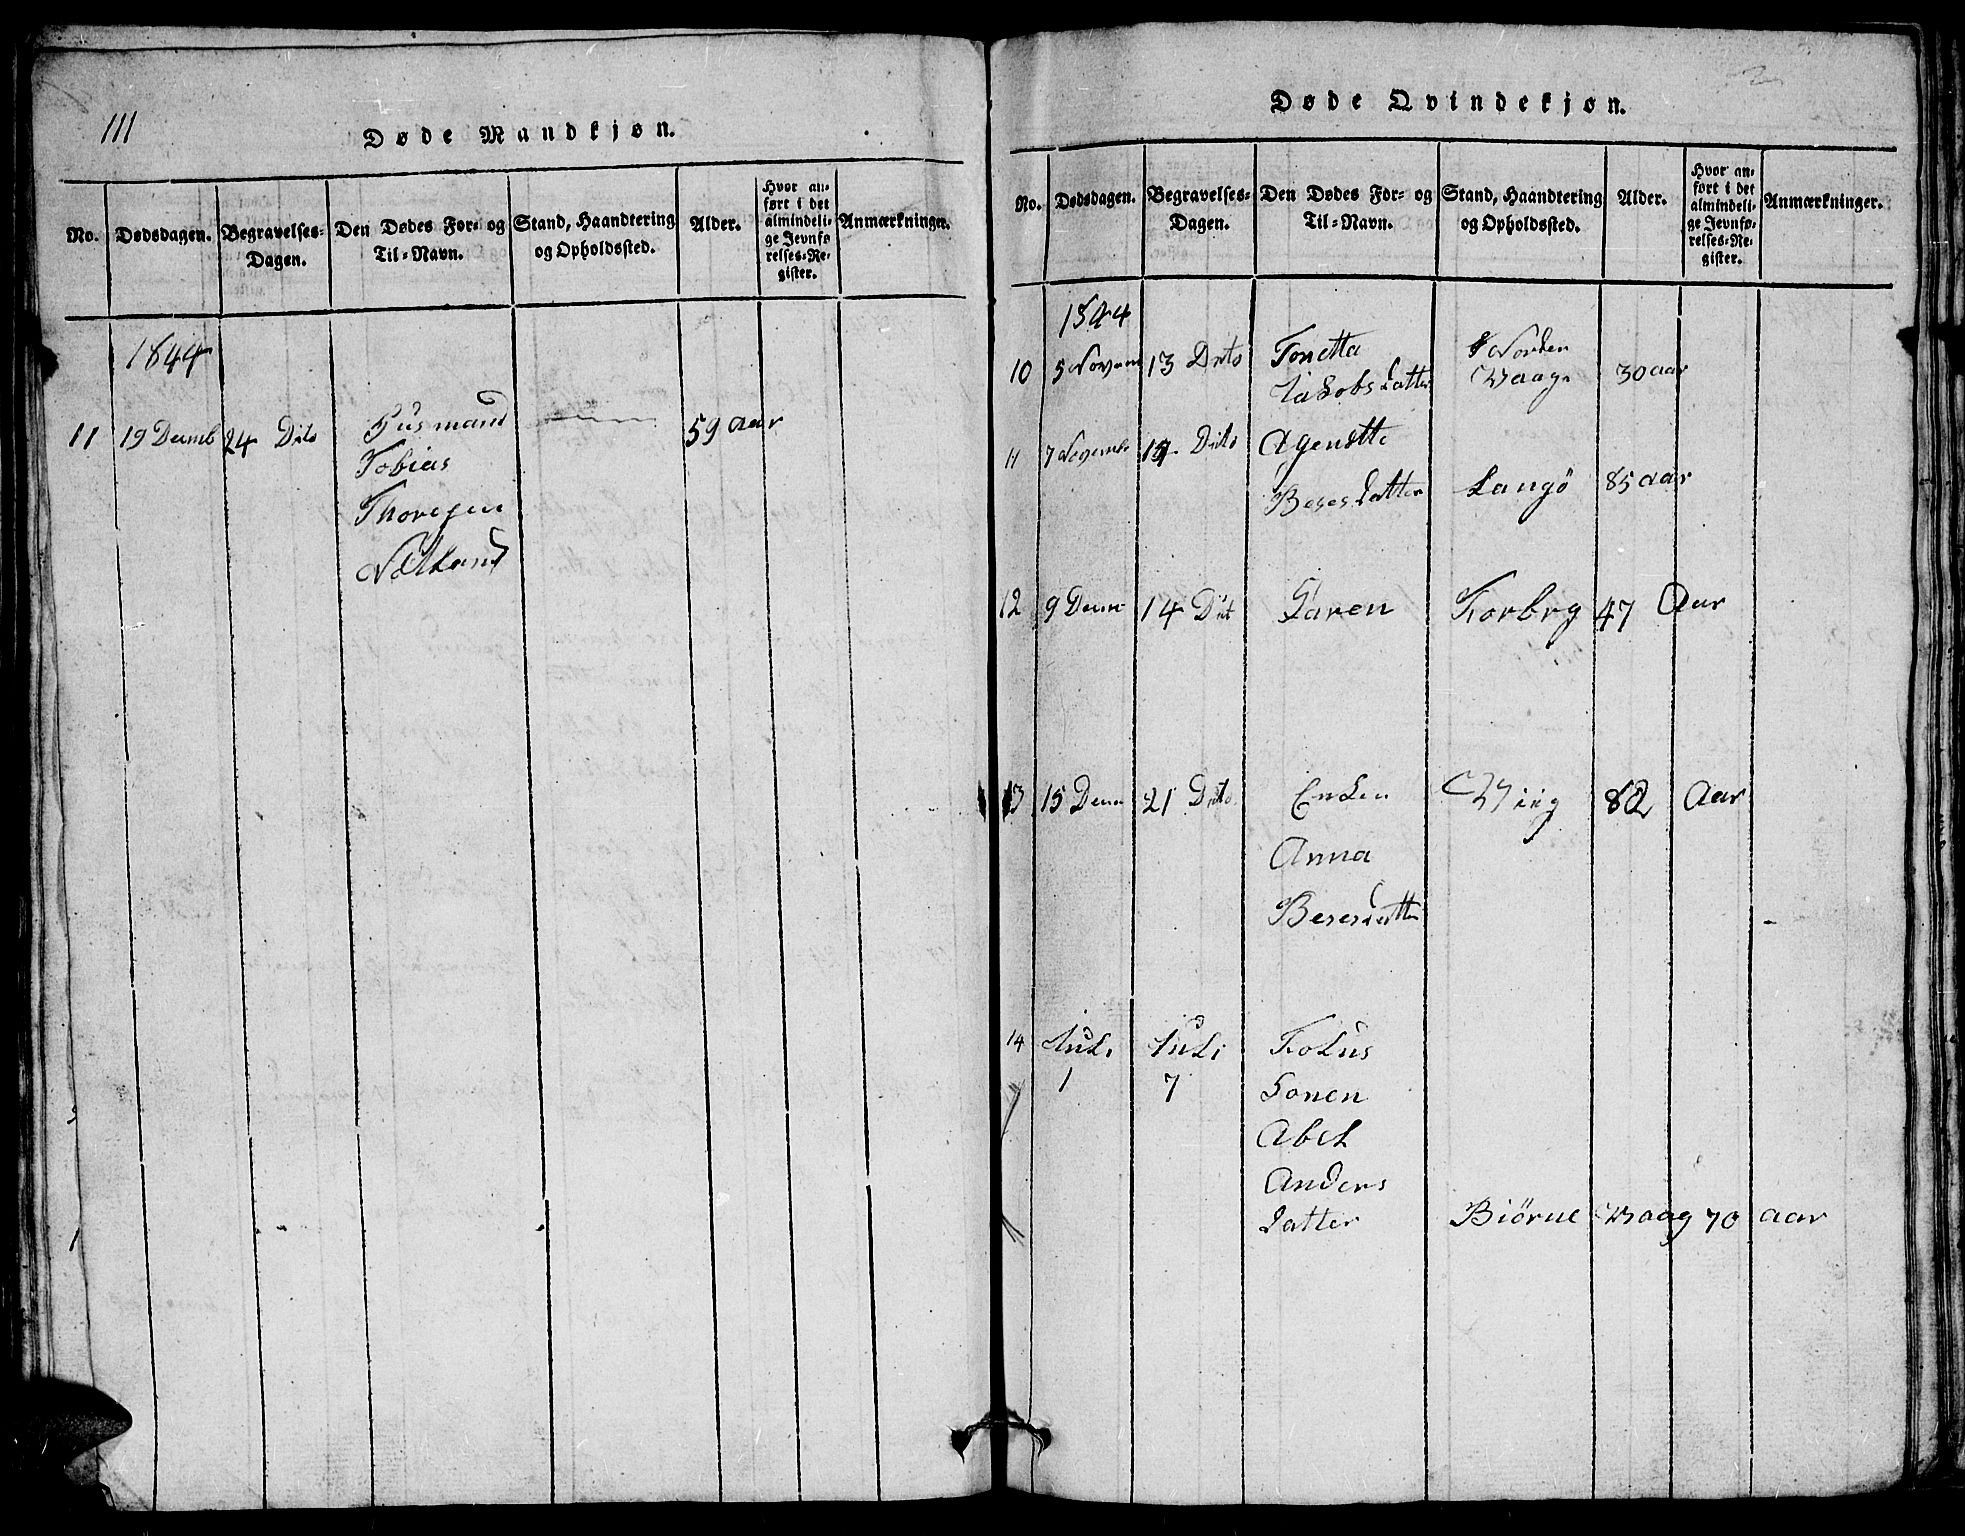 111
Døde Mandkjøn.
No. Dødsdagen. Begravelses-Dagen. Den Dødes For- og Til-Navn. Stand, Haandtering og Opholdssted. Alder. Hvor anført i det almindelige Jevnførelses-Register. Anmærkninger.
1844
11 19 Decmb 24 Dito Husmand 59 aar
Tobias
Thoresen
Døde Qvindekjøn.
No. Dødsdagen. Begravelses-Dagen. Den Dødes For- og Til-Navn. Stand, Haandtering og Opholdssted. Alder. Hvor anført i det almindelige Jevnførelses-Register. Anmærkninger.
1844
10 5 Novem 13 Dito Tonetta Norden 30 aar
Jakobs Datter Waage
11 7 Novemb 14 Dito Agenette
Beresdatter Langö 85 aar
12 9 Decm 14 Dit Karen 47 Aar
13 15 Decm 21 Dito Enken Wiig 82 Aar
Anna
Beresdatter
14 Juli Juli
1 7 Konen
Abel
Anders
Datter Biörne Waag 70 aar